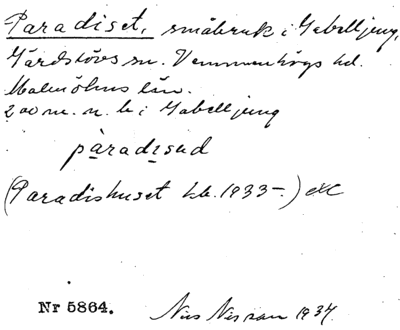 Paradiset, småbruk i Gabelljung,
Gärdslövs sn. Vemmenhögs hd.
Malmöhus län.
200 m. n. b. i Gabelljung
pàradisud
(Paradishuset kb. 1933-.)
Nr 5864. Nils Nilsson 1934